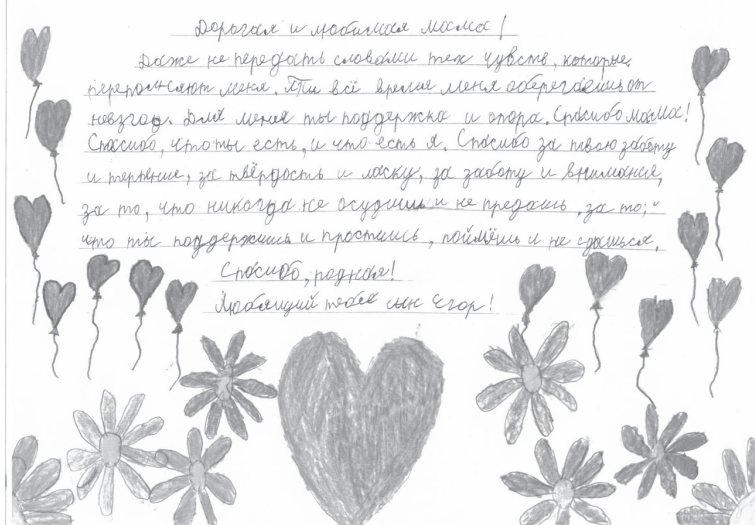 Дорогая и любимая мама!
Даже не передать словами тех чувств, которые,
переполняют меня. Ты всё время меня оберегаешь от
невзгод. Для меня ты поддержка и опора. Спасибо мама!
Спасибо, что ты есть, и что есть я. Спасибо за твою заботу
и терпение, за твёрдость и ласку, за заботу и внимание,
за то, что никогда не осудишь и не предашь, за то,
что ты поддержишь и простишь, поймёшь и не сдашься.
Спасибо, родная!
Любящий тебя сын Егор!